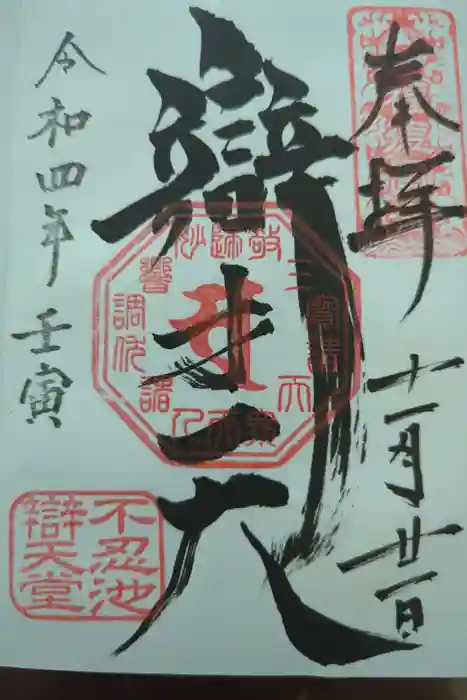 奉拝
十一月廿一日
辯才天
令和四年壬寅
不忍池
辯天堂